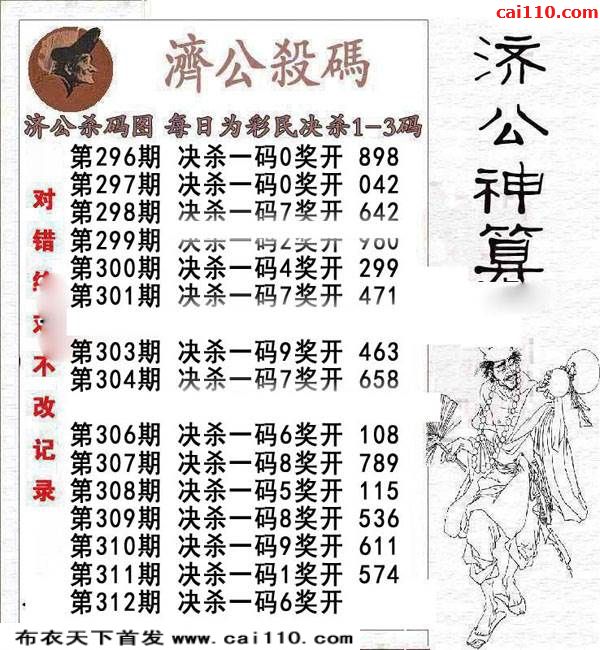 cai110.com
濟公殺碼
济公杀码图 每日为彩民决杀1-3码
第296期 决杀一码0奖开 898
第297期 决杀一码0奖开 042
第298期 决杀一码7奖开 642
第299期 决杀一码2奖开 980
第300期 决杀一码4奖开 299
第301期 决杀一码7奖开 471
第303期 决杀一码9奖开 463
第304期 决杀一码7奖开 658
第306期 决杀一码6奖开 108
第307期 决杀一码8奖开 789
第308期 决杀一码5奖开 115
第309期 决杀一码8奖开 536
第310期 决杀一码9奖开 611
第311期 决杀一码1奖开 574
第312期 决杀一码6奖开
对错 不改记录
济公神算
布衣天下首发 www.cai110.com